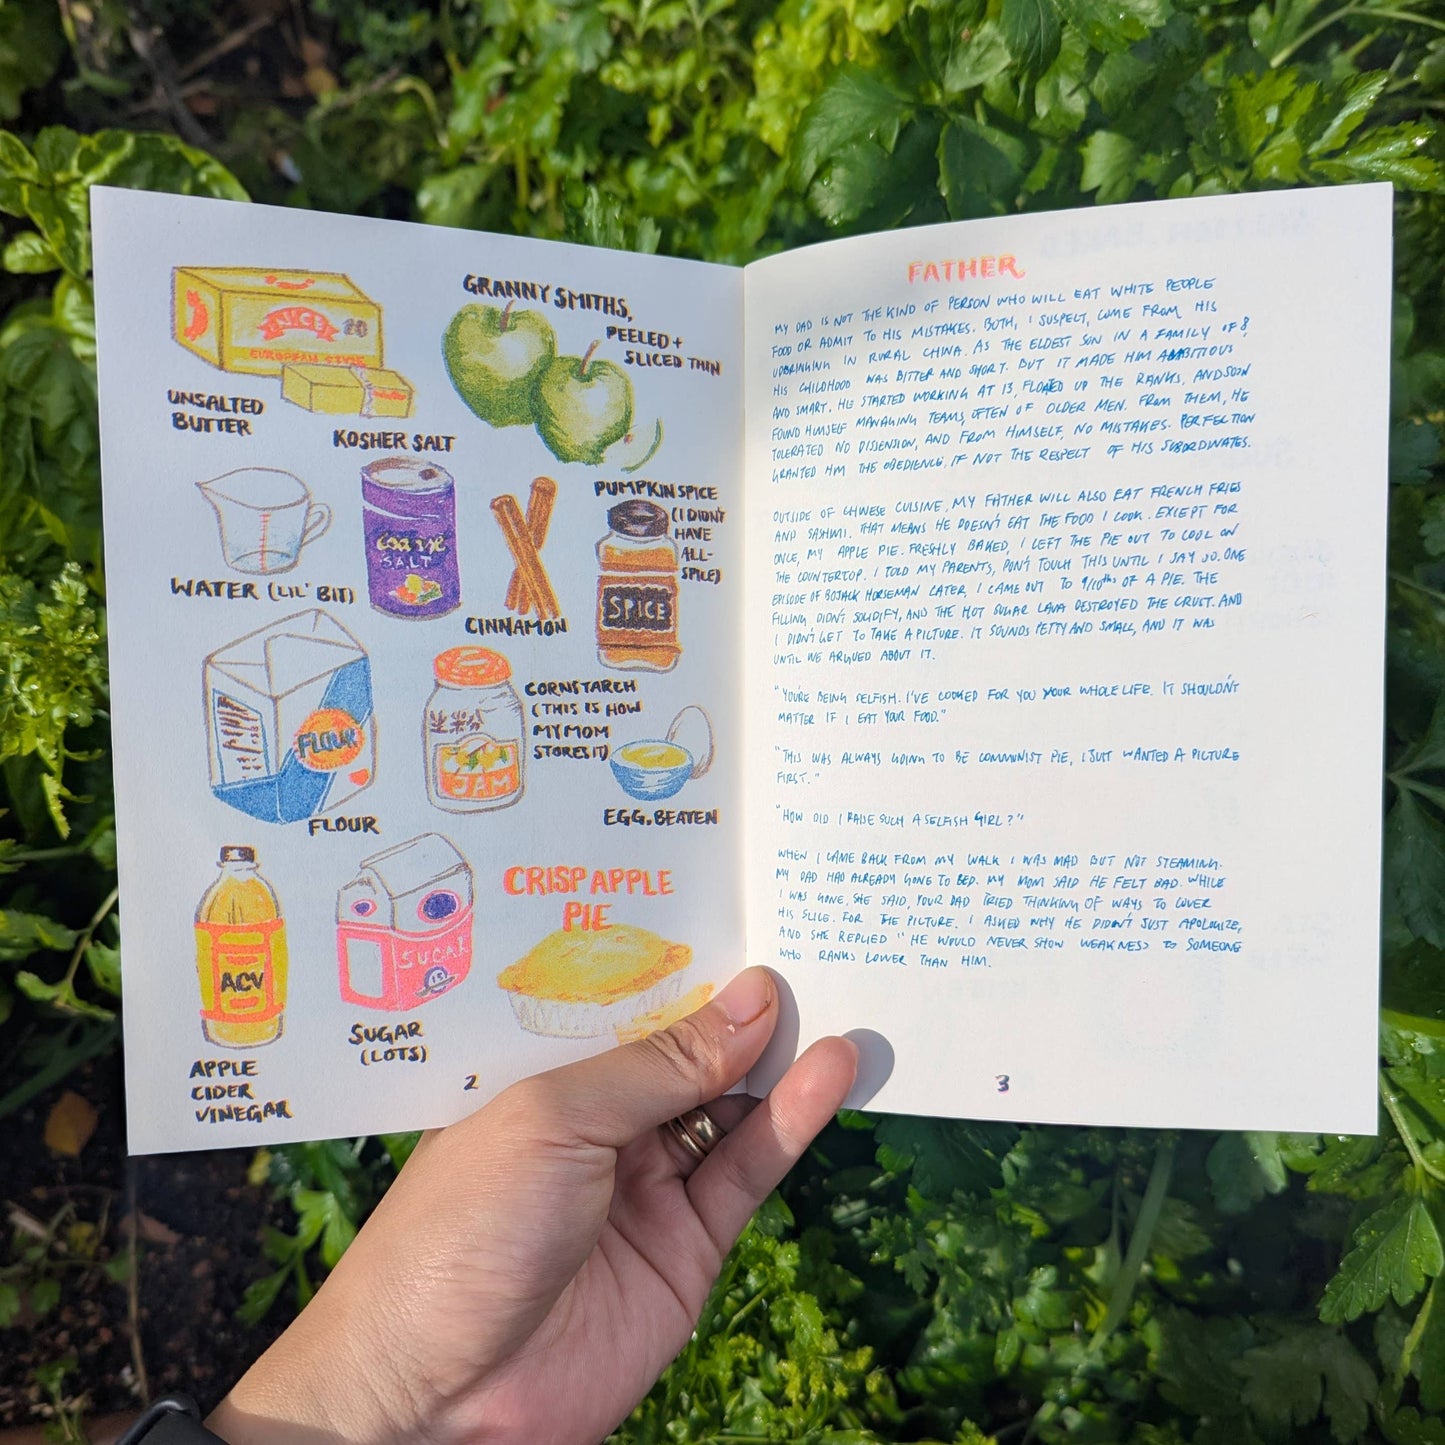 NICE 20
EUROPEAN STYLE
UNSALTED
BUTTER
GRANNY SMITHS,
PEELED +
SLICED THIN
KOSHER SALT
COARSE
SALT
WATER (LIL' BIT)
CINNAMON
PUMPKIN SPICE
(I DIDN'T
HAVE
ALL-
SPICE)
SPICE
FLOUR
FLOUR
CORNSTARCH
(THIS IS HOW
MY MOM
STORES IT)
粟米粉
JAM
EGG, BEATEN
ACV
APPLE
CIDER
VINEGAR
SUGAR
SUGAR
(LOTS)
CRISP APPLE
PIE
2
FATHER
MY DAD IS NOT THE KIND OF PERSON WHO WILL EAT WHITE PEOPLE
FOOD OR ADMIT TO HIS MISTAKES. BOTH, I SUSPECT, COME FROM HIS
UPBRINGING IN RURAL CHINA. AS THE ELDEST SON IN A FAMILY OF 8,
HIS CHILDHOOD WAS BITTER AND SHORT. BUT IT MADE HIM AMBITIOUS
AND SMART. HE STARTED WORKING AT 13, FLOATED UP THE RANKS, AND SOON
FOUND HIMSELF MANAGING TEAMS, OFTEN OF OLDER MEN. FROM THEM, HE
TOLERATED NO DISSENSION, AND FROM HIMSELF, NO MISTAKES. PERFECTION
GRANTED HIM THE OBEDIENCE, IF NOT THE RESPECT OF HIS SUBORDINATES.
OUTSIDE OF CHINESE CUISINE, MY FATHER WILL ALSO EAT FRENCH FRIES
AND SASHIMI. THAT MEANS HE DOESN'T EAT THE FOOD I COOK. EXCEPT FOR
ONCE, MY APPLE PIE. FRESHLY BAKED, I LEFT THE PIE OUT TO COOL ON
THE COUNTERTOP. I TOLD MY PARENTS, DON'T TOUCH THIS UNTIL I SAY SO. ONE
EPISODE OF BOJACK HORSEMAN LATER, I CAME OUT TO 9/10ths OF A PIE. THE
FILLING DIDN'T SOLIDIFY, AND THE HOT SUGAR LAVA DESTROYED THE CRUST. AND
I DIDN'T GET TO TAKE A PICTURE. IT SOUNDS PETTY AND SMALL, AND IT WAS
UNTIL WE ARGUED ABOUT IT.
"YOU'RE BEING SELFISH. I'VE COOKED FOR YOU YOUR WHOLE LIFE. IT SHOULDN'T
MATTER IF I EAT YOUR FOOD."
"THIS WAS ALWAYS GOING TO BE COMMUNIST PIE, I JUST WANTED A PICTURE
FIRST."
"HOW DID I RAISE SUCH A SELFISH GIRL?"
WHEN I CAME BACK FROM MY WALK I WAS MAD BUT NOT STEAMING.
MY DAD HAD ALREADY GONE TO BED. MY MOM SAID HE FELT BAD. WHILE
I WAS GONE, SHE SAID, YOUR DAD TRIED THINKING OF WAYS TO COVER
HIS SLICE. FOR THE PICTURE. I ASKED WHY HE DIDN'T JUST APOLOGIZE,
AND SHE REPLIED "HE WOULD NEVER SHOW WEAKNESS TO SOMEONE
WHO RANKS LOWER THAN HIM.
3